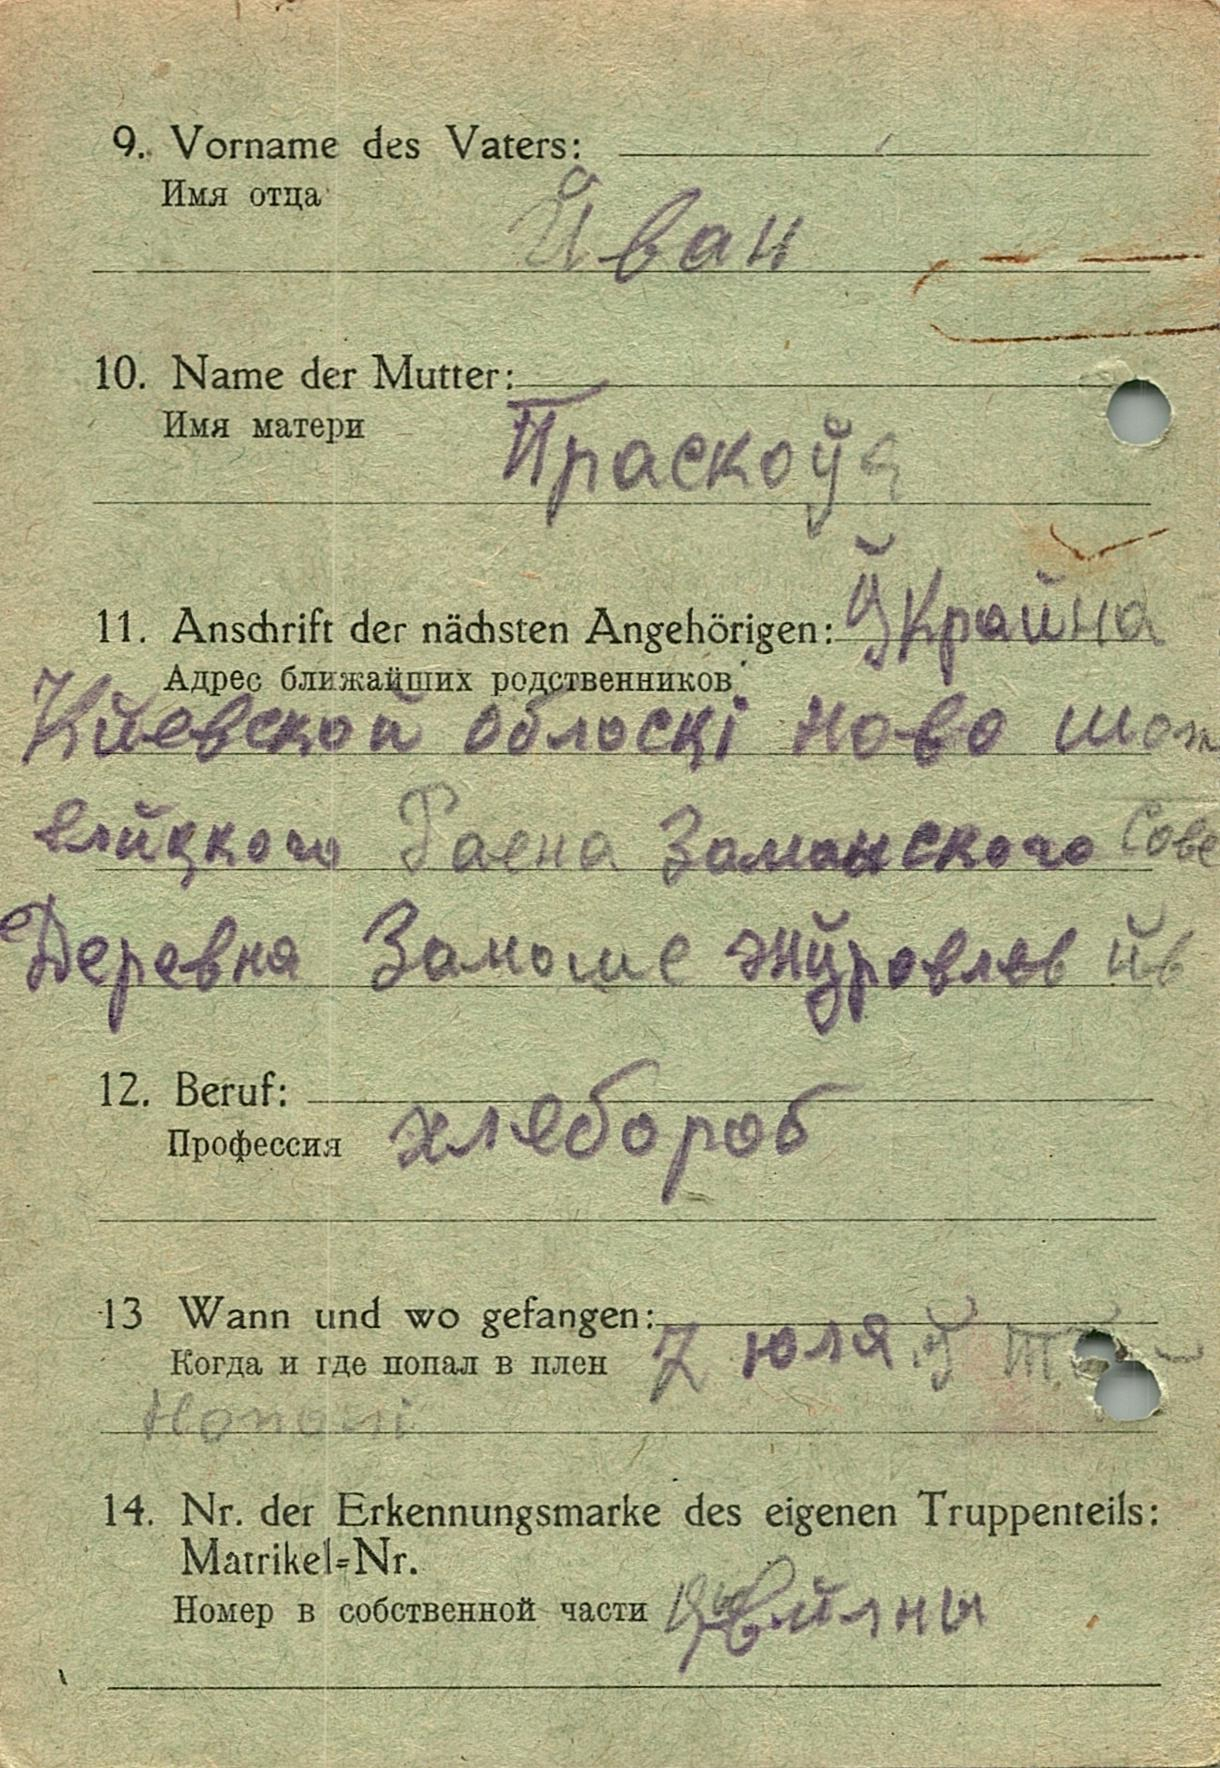 9. Vorname des Vaters:
Имя отца
Йван
10. Name der Mutter:
Имя матери
Праскоўя
11. Anschrift der nächsten Angehörigen: Ўкрайна
Адрес ближайших родственников
Кйевской облоскі Ново шоп
елйцкого Раена Замошского Сове
Деревня Замоше Жўровлев йв
12. Beruf:
Профессия
хлебороб
13 Wann und wo gefangen:
Когда и где попал в плен 7 юля ў
14. Nr. der Erkennungsmarke des eigenen Truppenteils:
Matrikel=Nr.
Номер в собственной части